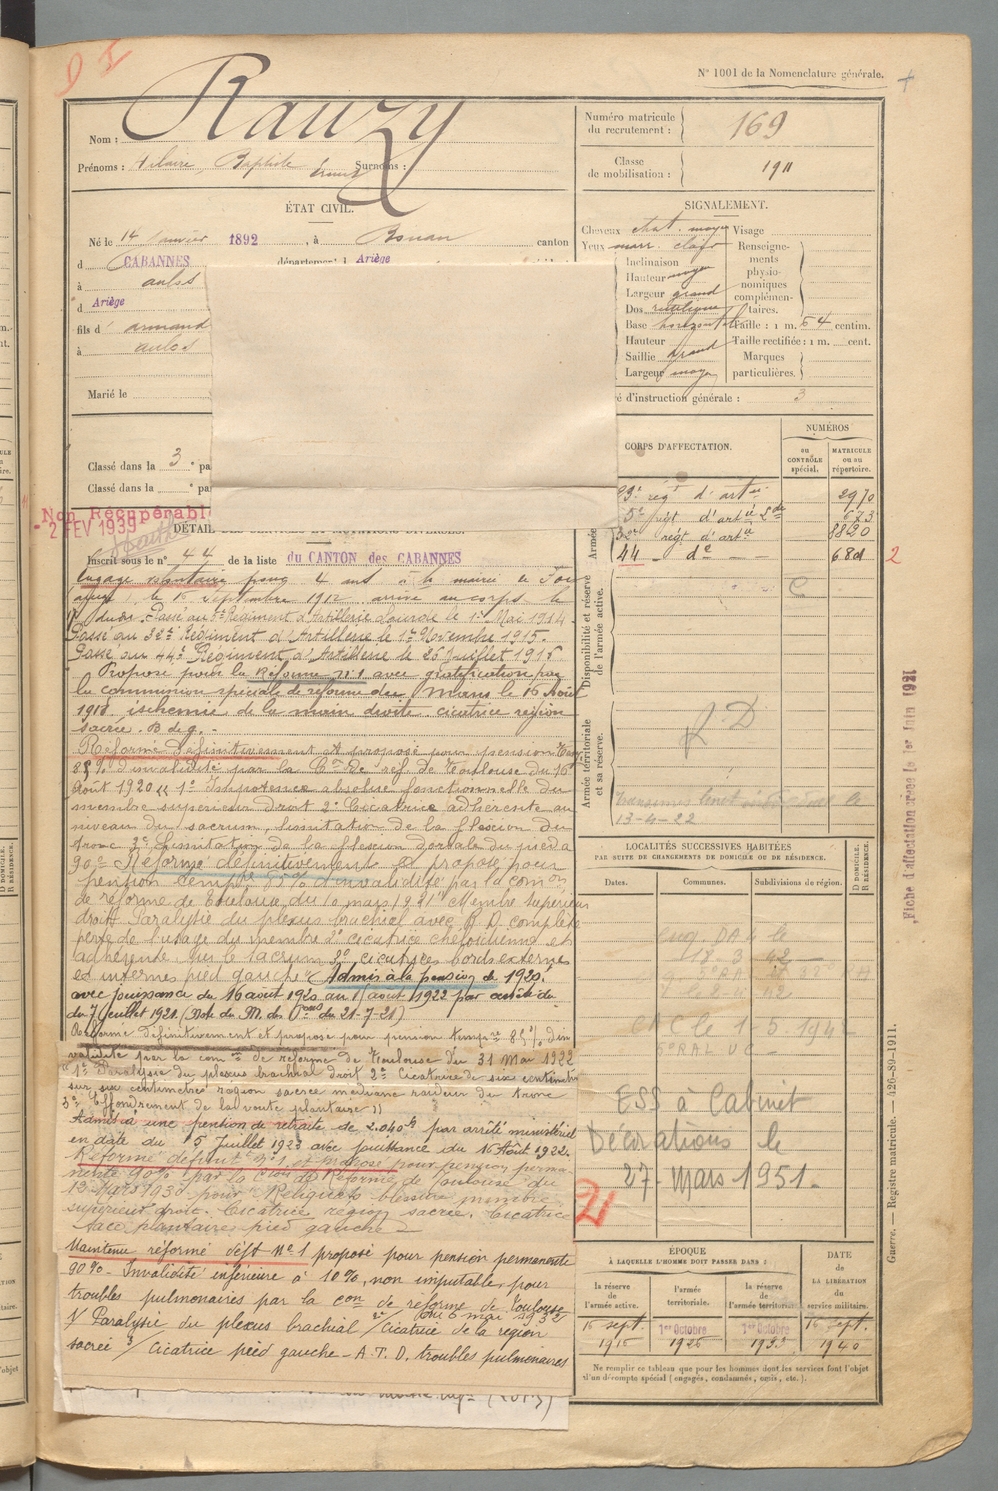 N° 1001 de la Nomenclature générale.
Nom : Rauzy
Prénoms : Hilaire, Baptiste Ernest Surnoms :
Numéro matricule du recrutement : 169
Classe de mobilisation : 1911
ÉTAT CIVIL.
Né le 14 janvier 1892, à Bouan canton
d CABANNES département d Ariège
à aulos
d Ariège
fils d' armand
à aulos
Marié le
Classé dans la 3e pa
Classé dans la e pa
SIGNALEMENT.
Cheveux chat. moyen
Yeux marr. clair
Inclinaison
Hauteur moyen
Largeur grand
Dos rectiligne
Base horizontale
Hauteur
Saillie grand
Largeur moyen
Visage
Renseignements physionomiques complémentaires.
Taille : 1 m. 54 centim.
Taille rectifiée : 1 m. cent.
Marques particulières.
é d'instruction générale : 3
CORPS D'AFFECTATION.
NUMÉROS
au CONTRÔLE spécial.
MATRICULE ou au répertoire.
régt d'artie 2970
5e régt d'artie 673
32e régt d'artie 8820
44 de
2
Armée
Disponibilité et réserve de l'armée active.
Armée territoriale et sa réserve.
13-4-22
Non Récupérable
- 2 FEV 1939
DÉTAIL
Inscrit sous le n° 44 de la liste du CANTON des CABANNES
Engagé volontaire pour 4 ans à la mairie de
le 16 Septembre 1912 arrivé au corps le
dudit. Passé au 5e Régiment d'Artillerie Lourde le 1er Mai 1914
Passé au 32e Régiment d'Artillerie le 1er Novembre 1915.
Passé au 44e Régiment d'Artillerie le 26 Juillet 1916
Proposé pour la Réforme n° 1 avec gratification par
la commission spéciale de réforme du Mans le 16 Août
1918 ischemie de la main droite. cicatrice région
sacrée.
Réformé Définitivement et proposé pour pension
85% d'invalidité par la Con De réf. De Toulouse du 16
Août 1920 « 1° Impotence absolue fonctionnelle du
membre supérieur Droit 2° Cicatrice adhérente au
niveau du sacrum, limitation de la flexion du
tronc 3° Limitation de la flexion dorsale du pied à
90° Réformé définitivement et proposé pour
pension tempre 85% d'invalidité par la comon
de réforme de Toulouse du 10 mars 1921 Membre supérieur
droit Paralysie du plexus brachial avec R D complète
perte de l'usage du membre 2° cicatrice chéloidienne et
adhérente sur le sacrum 3° cicatrices bords externes
et internes pied gauche Admis à la pension de 1920f
avec jouissance du 16 août 1920 au 1 août 1922 par arrêté du
du 7 juillet 1921. (Note du M. des Pons du 21-7-21)
Réformé définitivement et proposé pour pension tempre 85% d'in
validité par la comon de Réforme de Toulouse du 31 Mai 1922
« 1° Paralysie du plexus brachial droit 2° Cicatrice de six centimètres
sur six centimètres région sacrée médiane raideur du tronc
3° Effondrement de la voute plantaire »
Admis à une pension de retraite de 2.040f par arrêté ministériel
en date du 5 Juillet 1923 avec jouissance du 16 Août 1922.
Réformé définitt n° 1 et proposé pour pension perma-
nente 90% par la Con de Réforme de Toulouse du
Mars 1930 pour Reliquats blessure membre
supérieur droit. Cicatrice région sacrée. Cicatrice
face plantaire pied gauche
Maintenu réformé déft N° 1 proposé pour pension permanente
90% - Invalidité inférieure à 10%, non imputable, pour
troubles pulmonaires par la con de réforme de Toulouse
du 6 mai 1932
1/ Paralysie du plexus brachial 2/ Cicatrice de la région
sacrée 3/ Cicatrice pied gauche - A.T.D. troubles pulmonaires
LOCALITÉS SUCCESSIVES HABITÉES
PAR SUITE DE CHANGEMENTS DE DOMICILE OU DE RÉSIDENCE.
Dates.
Communes.
Subdivisions de région.
D DOMICILE. R RÉSIDENCE.
ESS à Cabinet
Décorations le
27 Mars 1951.
ÉPOQUE
À LAQUELLE L'HOMME DOIT PASSER DANS :
la réserve de l'armée active.
l'armée territoriale.
la réserve de l'armée territoriale
DATE de LA LIBÉRATION du service militaire.
16 sept. 1915
1er Octobre 1926
1er Octobre
16 Sept. 1940
Ne remplir ce tableau que pour les hommes dont les services font l'objet
d'un décompte spécial (engagés, condamnés, omis, etc.).
Fiche d'affectation créée le 1er Juin 1921
Guerre. — Registre matricule. — 426-89-1911.